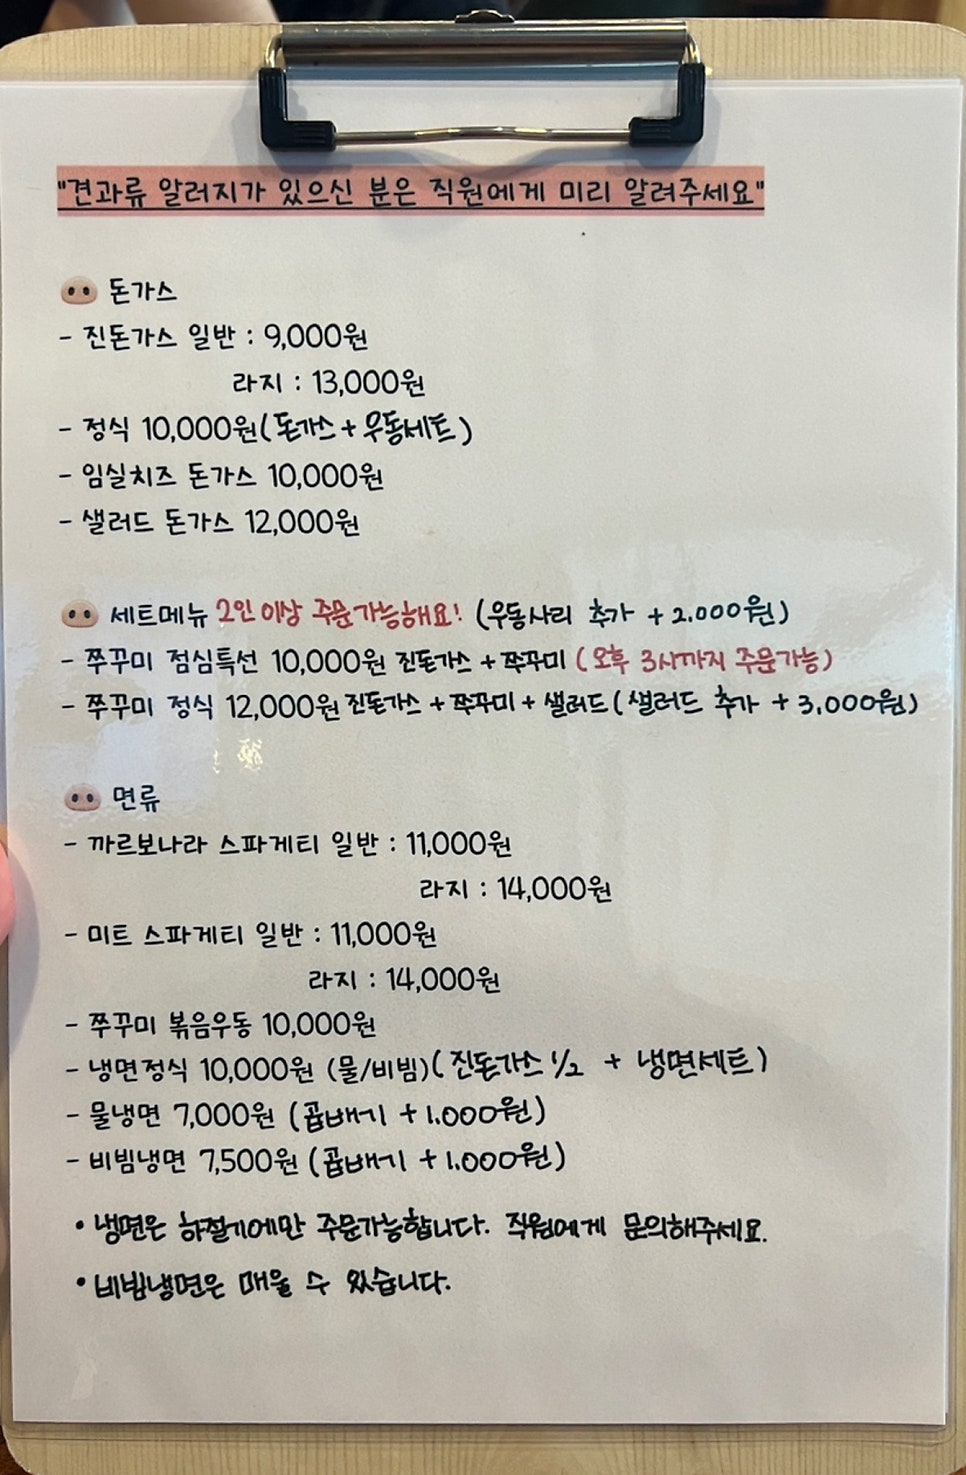 "견과류 알러지가 있으신 분은 직원에게 미리 알려주세요"
돈가스
- 진돈가스 일반 : 9,000원
라지 : 13,000원
- 정식 10,000원(돈가스 + 우동세트)
- 임실치즈 돈가스 10,000원
- 샐러드 돈가스 12,000원
세트메뉴 2인 이상 주문가능해요! (우동사리 추가 + 2.000원)
- 쭈꾸미 점심특선 10,000원 진돈가스 + 쭈꾸미 (오후 3시까지 주문가능)
- 쭈꾸미 정식 12,000원 진돈가스 + 쭈꾸미 + 샐러드 (샐러드 추가 + 3.000원)
면류
- 까르보나라 스파게티 일반 : 11,000원
라지 : 14,000원
- 미트 스파게티 일반 : 11,000원
라지 : 14,000원
- 쭈꾸미 볶음우동 10,000원
- 냉면정식 10,000원 (물/비빔)(진돈가스 1/2 + 냉면세트)
- 물냉면 7,000원 (곱배기 + 1.000원)
- 비빔냉면 7,500원 (곱배기 + 1.000원)
• 냉면은 하절기에만 주문가능합니다. 직원에게 문의해주세요.
• 비빔냉면은 매울 수 있습니다.